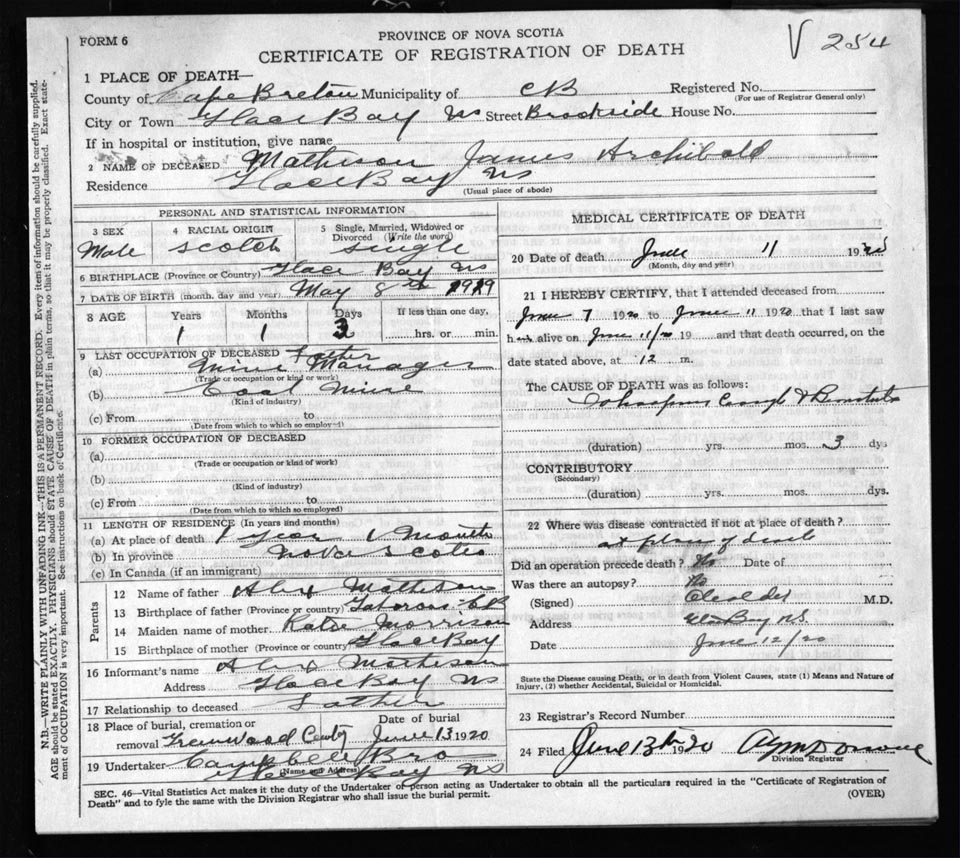 FORM 6
PROVINCE OF NOVA SCOTIA
CERTIFICATE OF REGISTRATION OF DEATH
V 254
1 PLACE OF DEATH—
County of Cape Breton Municipality of CB Registered No.
(For use of Registrar General only)
City or Town Glace Bay NS Street Brookside House No.
If in hospital or institution, give name
2 NAME OF DECEASED Matheson James Archibald
Residence Glace Bay NS
(Usual place of abode)
PERSONAL AND STATISTICAL INFORMATION
3 SEX Male
4 RACIAL ORIGIN Scotch
5 Single, Married, Widowed or Divorced (Write the word) Single
6 BIRTHPLACE (Province or Country) Glace Bay NS
7 DATE OF BIRTH (month, day and year) May 8th 1919
8 AGE Years Months Days If less than one day,
1 1 3 hrs. or min.
9 LAST OCCUPATION OF DECEASED Father
(a) Mine Manager
(Trade or occupation or kind or work)
(b) Coal Mine
(Kind of industry)
(c) From to
(Date from which to which so employed)
10 FORMER OCCUPATION OF DECEASED
(a)
(Trade or occupation or kind of work)
(b)
(Kind of industry)
(c) From to
(Date from which to which so employed)
11 LENGTH OF RESIDENCE (In years and months)
(a) At place of death 1 year 1 Month
(b) In province Nova Scotia
(c) In Canada (if an immigrant)
Parents
12 Name of father Alex Matheson
13 Birthplace of father (Province or country) Gabarous CB
14 Maiden name of mother Katie Morrison
15 Birthplace of mother (Province or country) Glace Bay
16 Informant's name Alex Matheson
Address Glace Bay NS
17 Relationship to deceased Father
18 Place of burial, cremation or removal Greenwood Cemty Date of burial June 13 1920
19 Undertaker Campbell Bro
(Name and Address) Glace Bay NS
MEDICAL CERTIFICATE OF DEATH
20 Date of death June 11 1920
(Month, day and year)
21 I HEREBY CERTIFY, that I attended deceased from
June 7 1920 to June 11 1920 that I last saw
h alive on June 11/20 19 and that death occurred, on the
date stated above, at 12 m.
The CAUSE OF DEATH was as follows:
Whooping Cough &
(duration) yrs. mos. 3 dys
CONTRIBUTORY
(Secondary)
(duration) yrs. mos. dys.
22 Where was disease contracted if not at place of death?
at place of death
Did an operation precede death? No Date of
Was there an autopsy? No
(Signed) M.D.
Address Glace Bay N.S.
Date June 12/20
State the Disease causing Death, or in death from Violent Causes, state (1) Means and Nature of Injury, (2) whether Accidental, Suicidal or Homicidal.
23 Registrar's Record Number
24 Filed June 13th 1920
Division Registrar
SEC. 46—Vital Statistics Act makes it the duty of the Undertaker or person acting as Undertaker to obtain all the particulars required in the "Certificate of Registration of
Death" and to fyle the same with the Division Registrar who shall issue the burial permit.
(OVER)
N.B.—WRITE PLAINLY WITH UNFADING INK—THIS IS A PERMANENT RECORD. Every item of information should be carefully supplied.
AGE should be stated EXACTLY. PHYSICIANS should STATE CAUSE OF DEATH in plain terms, so that it may be properly classified. Exact state-
ment of OCCUPATION is very important. See instructions on back of Certificate.